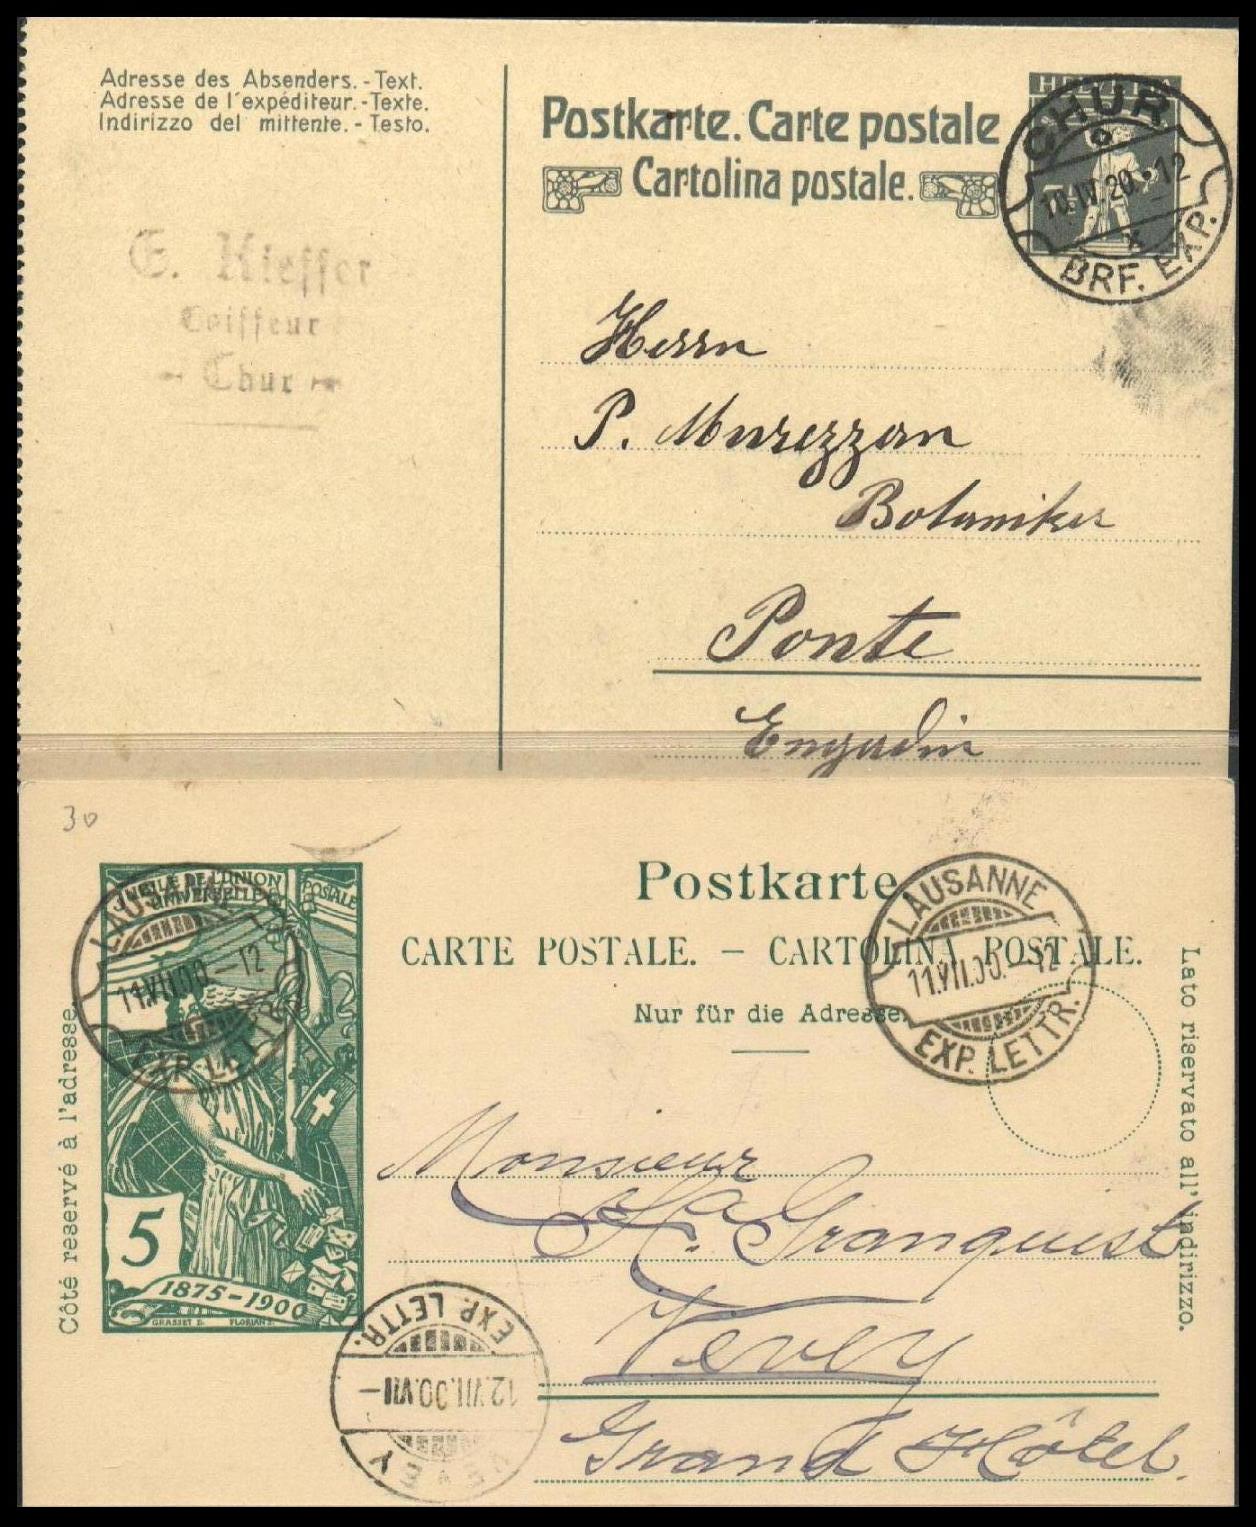 Adresse des Absenders.-Text.
Adresse de l'expéditeur.-Texte.
Indirizzo del mittente.-Testo.
Postkarte. Carte postale
Cartolina postale.
HELVETIA
CHUR
10.IV.20.-12
BRF. EXP.
E. Kieffer
Coiffeur
Chur
Herrn
P. Murezzan
Botaniker
Ponte
Engadin
30
JUBILÉ DE L'UNION
POSTALE
UNIVERSELLE
LAUSANNE
11.VII.00.-12
EXP. LETTR.
5
1875-1900
GRASSET D.
FLORIAN S.
Côté reservé à l'adresse.
Postkarte
CARTE POSTALE. – CARTOLINA POSTALE.
Nur für die Adresse.
LAUSANNE
11.VII.00.-12
EXP. LETTR.
Lato riservato all'indirizzo.
Monsieur
H. Granquist
Vevey
Grand Hôtel.
VEVEY
12.VII.00.VII-
EXP. LETTR.